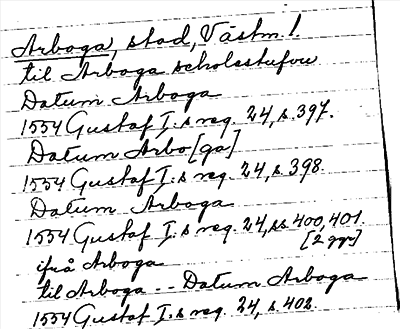 Arboga, stad, Västm. l.
til Arboga scholestufvu
Datum Arboga
1554 Gustaf I:s reg. 24, s. 397.
Datum Arbo[ga]
1554 Gustaf I:s reg. 24, s. 398.
Datum Arboga
1554 Gustaf I:s reg. 24, ss. 400, 401.
[2 ggr]
ifrå Arboga
til Arboga -- Datum Arboga
1554 Gustaf I:s reg. 24, s. 402